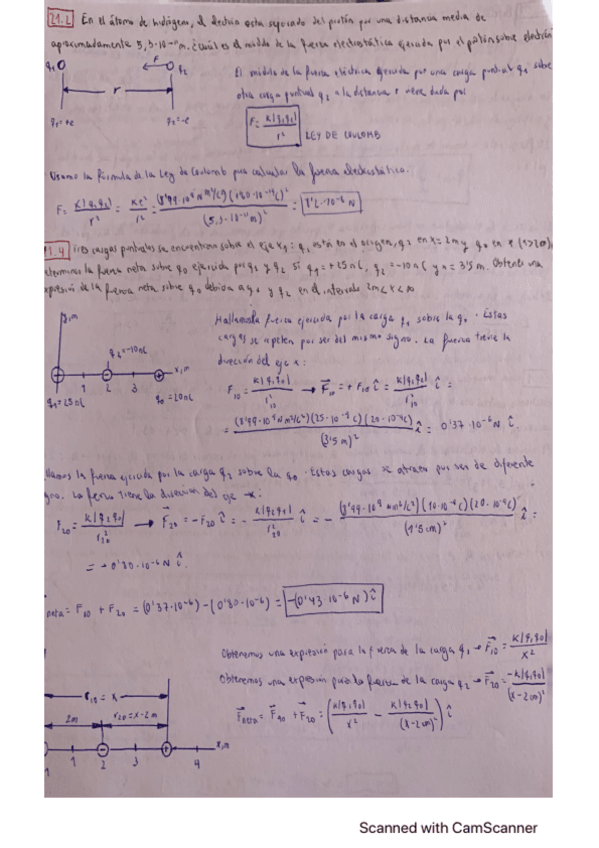 21.2 En el átomo de hidrógeno, el electrón está separado del protón por una distancia media de
aproximadamente 5,3·10⁻¹¹m. ¿Cuál es el módulo de la fuerza electrostática ejercida por el protón sobre electrón
q₁ F q₂
El módulo de la fuerza eléctrica ejercida por una carga puntual q₁ sobre
r
otra carga puntual q₂ a la distancia r viene dada por
q₁=+e q₂=-e
F = K|q₁q₂| / r² LEY DE COULOMB
Usamos la fórmula de la Ley de Coulomb para calcular la fuerza electrostática.
F = K|q₁q₂| / r² = Ke² / r² =
(5,3·10⁻¹¹m)²
= 8'2·10⁻⁸ N
cargas puntuales se encuentran sobre el eje x: q₁ está en el origen, q₂ en x=2m y q₀ en x (x>2m).
la fuerza neta sobre q₀ ejercida por q₁ y q₂ si q₁=+25nC, q₂=-10nC y x=3'5m. Obtener una
de la fuerza neta sobre q₀ debida a q₁ y q₂ en el intervalo 2m<x<∞
y,m
Hallamos la fuerza ejercida por la carga q₁ sobre la q₀. Estas
cargas se repelen por ser del mismo signo. La fuerza tiene la
dirección del eje x:
q₂=-10nC
x,m
1 2 3
q₁=25nC q₀=20nC
F₁₀ = K|q₁q₀| / r₁₀² → F⃗₁₀ = +F₁₀ î = K|q₁q₀| / r₁₀² î =
= (8'99·10⁹ N m²/C²)(25·10⁻⁹C)(20·10⁻⁹C) / (3'5m)² î = 0'37·10⁻⁶N î
la fuerza ejercida por la carga q₂ sobre la q₀. Estas cargas se atraen por ser de diferente
La fuerza tiene la dirección del eje -x:
F₂₀ = K|q₂q₀| / r₂₀² → F⃗₂₀ = -F₂₀ î = - K|q₂q₀| / r₂₀² î = - (8'99·10⁹ Nm²/C²)(10·10⁻⁹C)(20·10⁻⁹C) / (1'5m)² î =
= -0'80·10⁻⁶N î.
neta = F₁₀ + F₂₀ = (0'37·10⁻⁶) - (0'80·10⁻⁶) = -(0'43·10⁻⁶N) î
Obtenemos una expresión para la fuerza de la carga q₁ → F⃗₁₀ = K|q₁q₀| / x²
Obtenemos una expresión para la fuerza de la carga q₂ → F⃗₂₀ = -K|q₂q₀| / (x-2m)²
r₁₀=x
2m r₂₀=x-2m
F⃗neta = F⃗₁₀ + F⃗₂₀ = (K|q₁q₀| / x² - K|q₂q₀| / (x-2m)²) î
x,m
1 2 3 4
Scanned with CamScanner